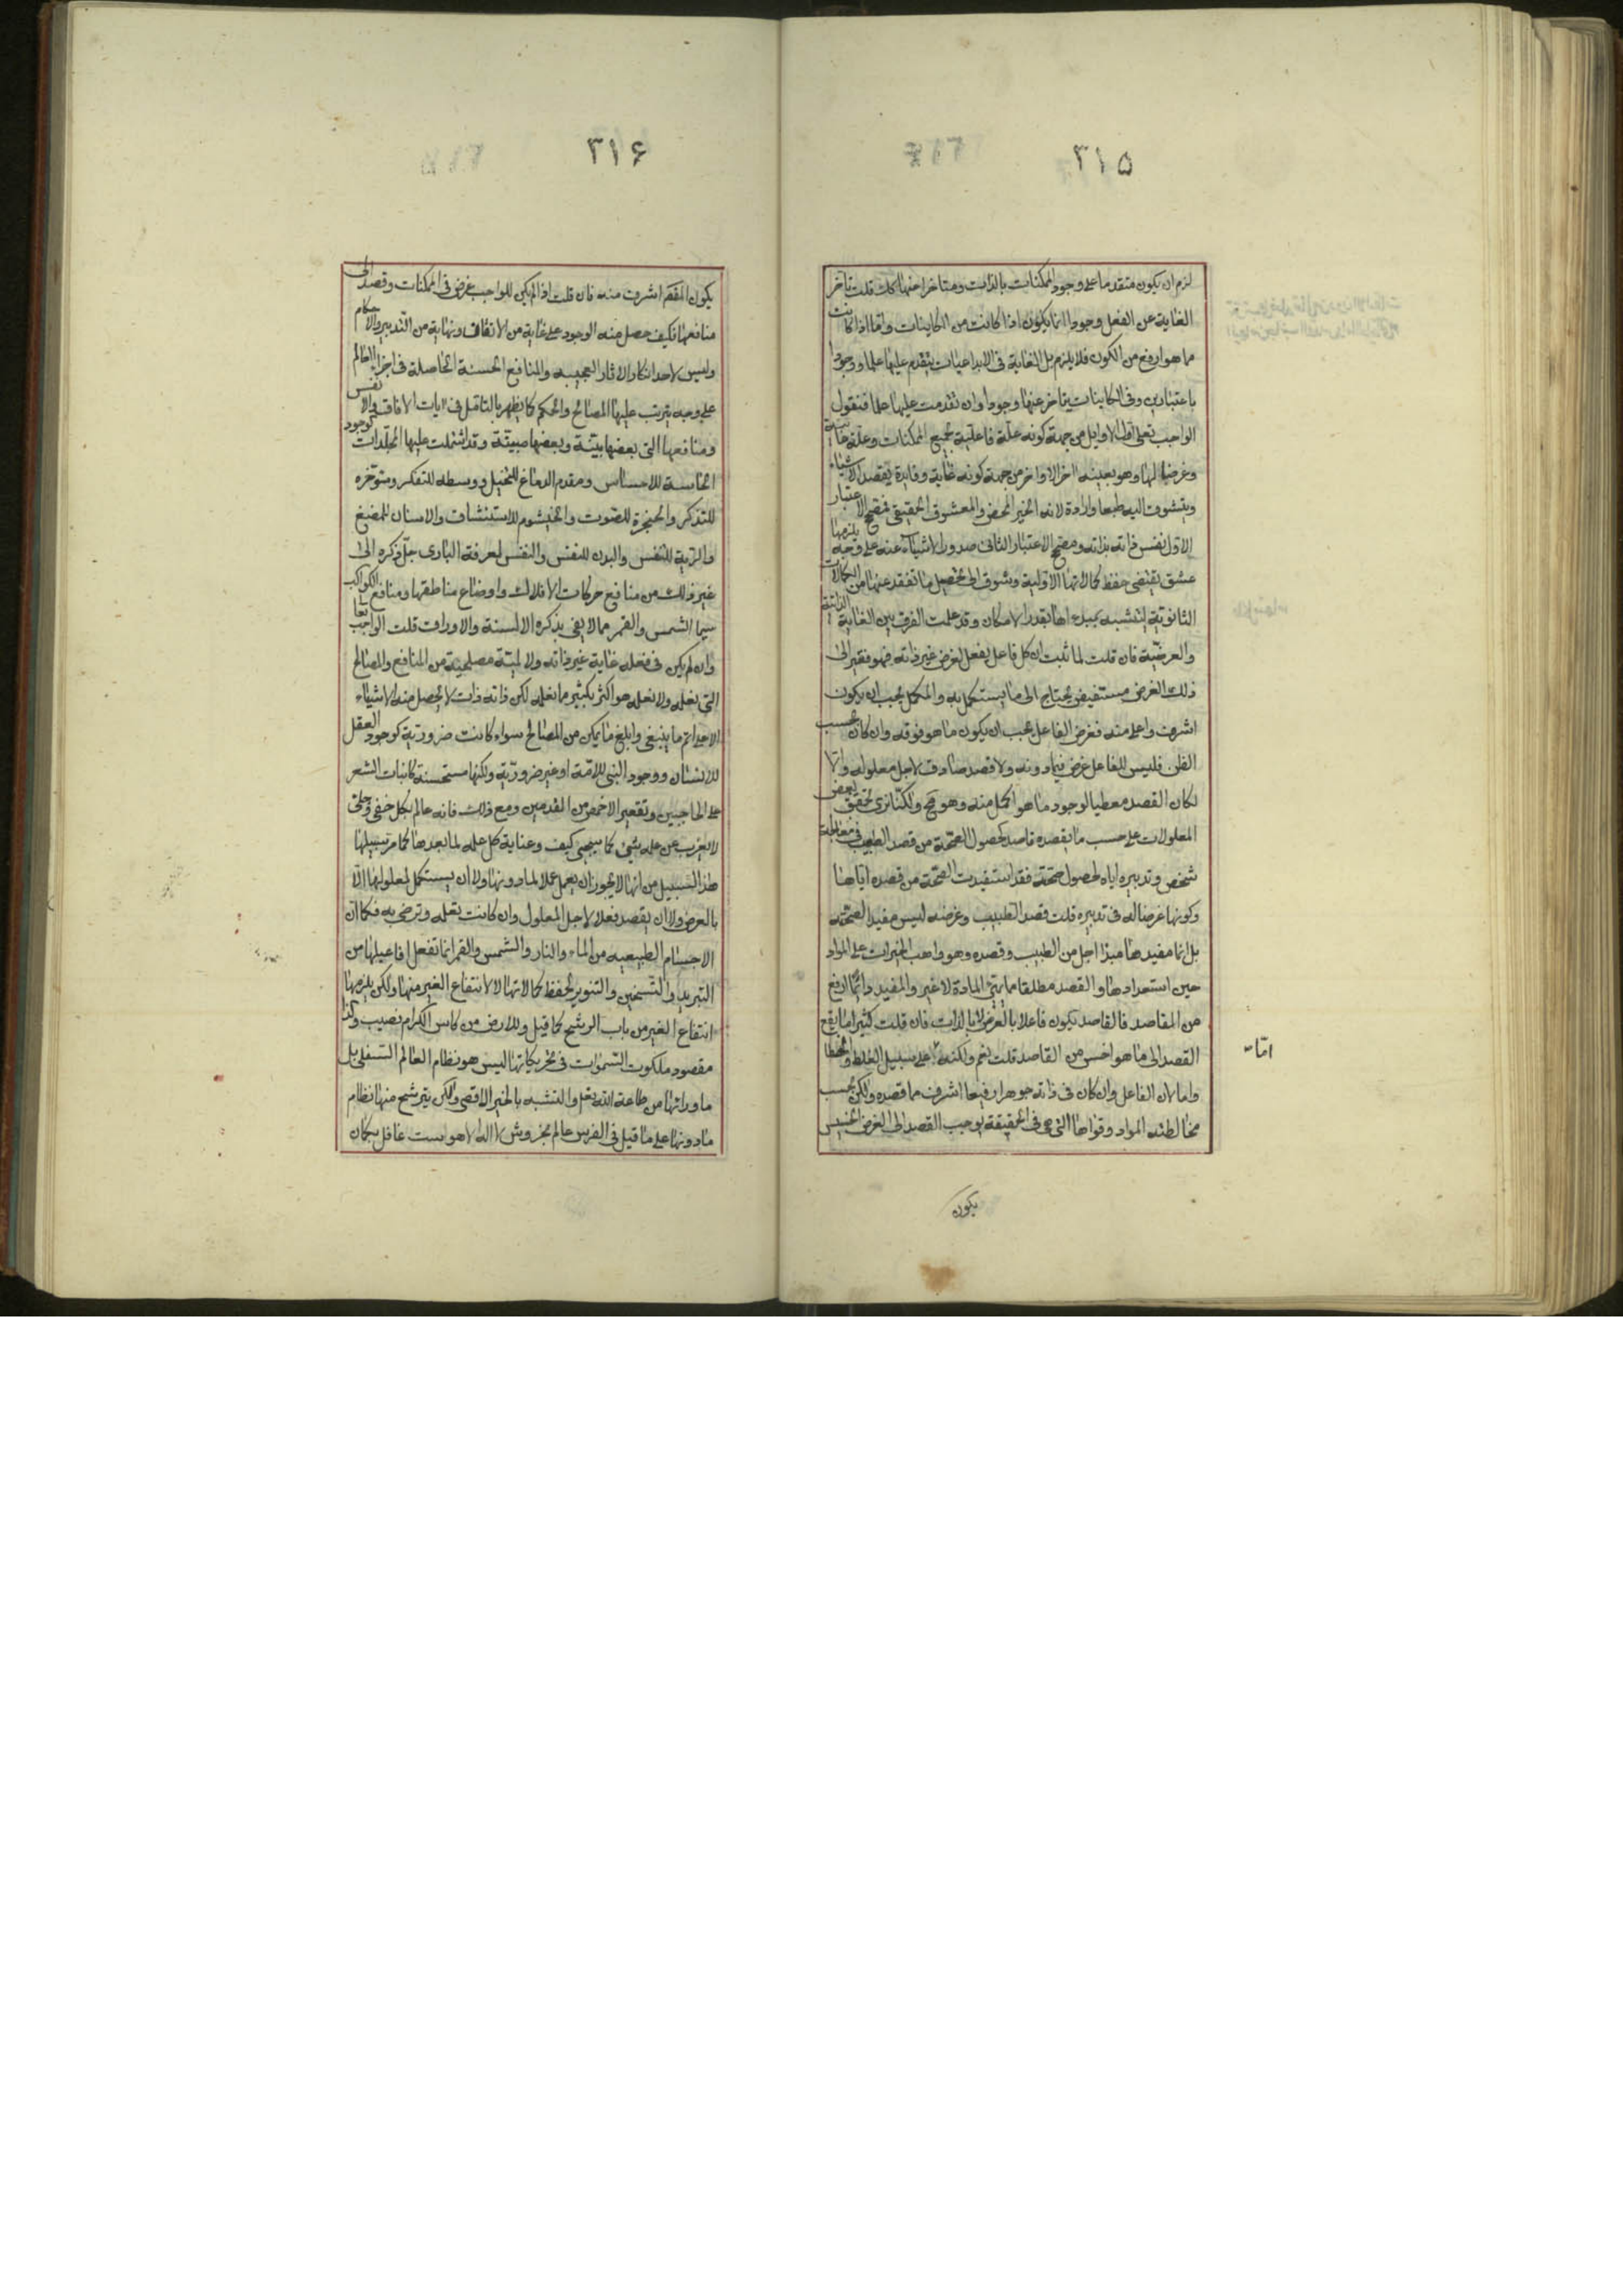 ٣١۵
لزم ان يكون متقدما على وجود الممكنات بالذات ومتاخرا عنها كك قلت تاخر
الغاية عن الفعل وجودا انما يكون اذا كانت من الكاينات واما اذا كانت
مما هو ارفع من الكون فلا يلزم بل الغاية فى الابداعيات يتقدم عليها علما ووجودا
باعتبارين وفى الكاينات يتاخر عنها وجودا وان تقدمت عليها علما فنقول
الواجب تعالى اول الاوايل من جهة كونه علة فاعلية لجميع الممكنات وعلة غائية
وغرضا لها وهو بعينه اخر الاواخر من جهة كونه غاية وفايدة يقصده الاشياء
ويتشوق اليه طبعا وارادة لانه الخير المحض والمعشوق الحقيقى فمصحح الاعتبار
الاول نفس ذاته بذاته ومصحح الاعتبار الثانى صدور الاشياء عنه على وجه يلزمها
عشق يقتضى حفظ كمالاتها الاولية وشوق الى تحصيل ما تفقد عنها من الكمالات
الثانوية ليتشبه بمبدءها بقدر الامكان وقد علمت الفرق بين الغاية الذاتية
والعرضية فان قلت لما ثبت ان كل فاعل يفعل لغرض غير ذاته فهو فقير الى
ذلك الغرض مستفيض يحتاج الى ما يستكمل به والمكمل يجب ان يكون
اشرف واعلى منه فغرض الفاعل يجب ان يكون ما هو فوقه وان كان بحسب
الظن فليس للفاعل غرض فيما دونه ولا قصد صادق لاجل معلوله والا
لكان القصد معطيا لوجود ما هو اكمل منه وهو مح ولكنا نرى تحقق بعض
المعلولات على حسب ما يقصده قاصد كحصول الصحة من قصد الطبيب فى معالجة
شخص وتدبيره اياه لحصول صحته فقد استفيدت الصحة من قصده اياها
وكونها غرضا له فى تدبيره قلت قصد الطبيب وغرضه ليس مفيد الصحة
بل انما مفيدها مبدا اجل من الطبيب وقصده وهو واهب الخيرات على المواد
حين استعدادها والقصد مطلقا مما يهئ المادة لا غير والمفيد دائما ارفع
من المقاصد فالقاصد يكون فاعلا بالعرض لا بالذات فان قلت كثيرا ما يقع
القصد الى ما هو اخس من القاصد قلت نعم ولكنه على سبيل الغلط والخطا
امّا
واما لان الفاعل وان كان فى ذاته جوهرا رفيعا اشرف مما قصده ولكن بحسب
مخالطته المواد وقواها التى هى فى الحقيقة يوجب القصد الى الغرض الخسيس
يكون
٣١۶
يكون المقصد اشرف منه فان قلت اذا لم يكن للواجب غرض فى الممكنات وقصد الى
منافعها فكيف حصل منه الوجود على غاية من الاتقان ونهاية من التدبير والاحكام
وليس لاحد انكار الاثار العجيبه والمنافع الحسنة الحاصلة فى اجزاء العالم
على وجه يترتب عليها المصالح والحكم كما يظهر بالتامل فى ايات الافاق والانفس
ومنافعها التى بعضها بينة وبعضها مبينة وقد اشتملت عليها المجلدات كوجود
الحاسة للاحساس ومقدم الدماغ للتخيل ووسطه للتفكر ومؤخره
للتذكر والحنجرة للصوت والخيشوم للاستنشاق والاسنان للمضغ
والرية للتنفس والبدن للنفس والنفس لمعرفة البارى جل ذكره الى
غير ذلك من منافع حركات الافلاك واوضاع مناطقها ومنافع الكواكب
سيما الشمس والقمر مما لا يفى بذكره الالسنة والاوراق قلت الواجب تعا
وان لم يكن فى فعله غاية غير ذاته ولا لمية مصلحية من المنافع والمصالح
التى نعلمه ولا نعلمه هو اكثر بكثير مما نعلمه لكن ذاته ذات لا يحصل منه الاشياء
الا على اتم ما ينبغى وابلغ ما يمكن من المصالح سواء كانت ضرورية كوجود العقل
للانسان ووجود النبى للامة او غير ضرورية ولكنها مستحسنة كانبات الشعر
على الحاجبين وتقعير الاخمص من القدمين ومع ذلك فانه عالم بكل خفى وجلى
لا يعزب عن علمه شئ كما سيجئ كيف وعناية كل علة لما بعدها كما مر سبيلها
هذا السبيل من انها لا يجوز ان يعمل عملا لما دونها ولا ان يستكمل بمعلولها الا
بالعرض ولا ان يقصد فعلا لاجل المعلول وان كانت يعلمه وترضى به فكما ان
الاجسام الطبيعيه من الماء والنار والشمس والقمر انما تفعل افاعيلها من
التبريد والتسخين والتنوير لحفظ كمالاتها لا لانتفاع الغير منها ولكن يلزمها
انتفاع الغير من باب الرشح كما قيل وللارض من كاس الكرام نصيب وكذا
مقصود ملكوت السموات فى تحريكاتها ليس هو نظام العالم السفلى بل
ما ورائها من طاعة الله تعالى والتشبه بالخير الاقصى ولكن يترشح منها نظام
ما دونها على ما قيل فى الفرس عالم بخروش لا اله الا هوست غافل بگمان